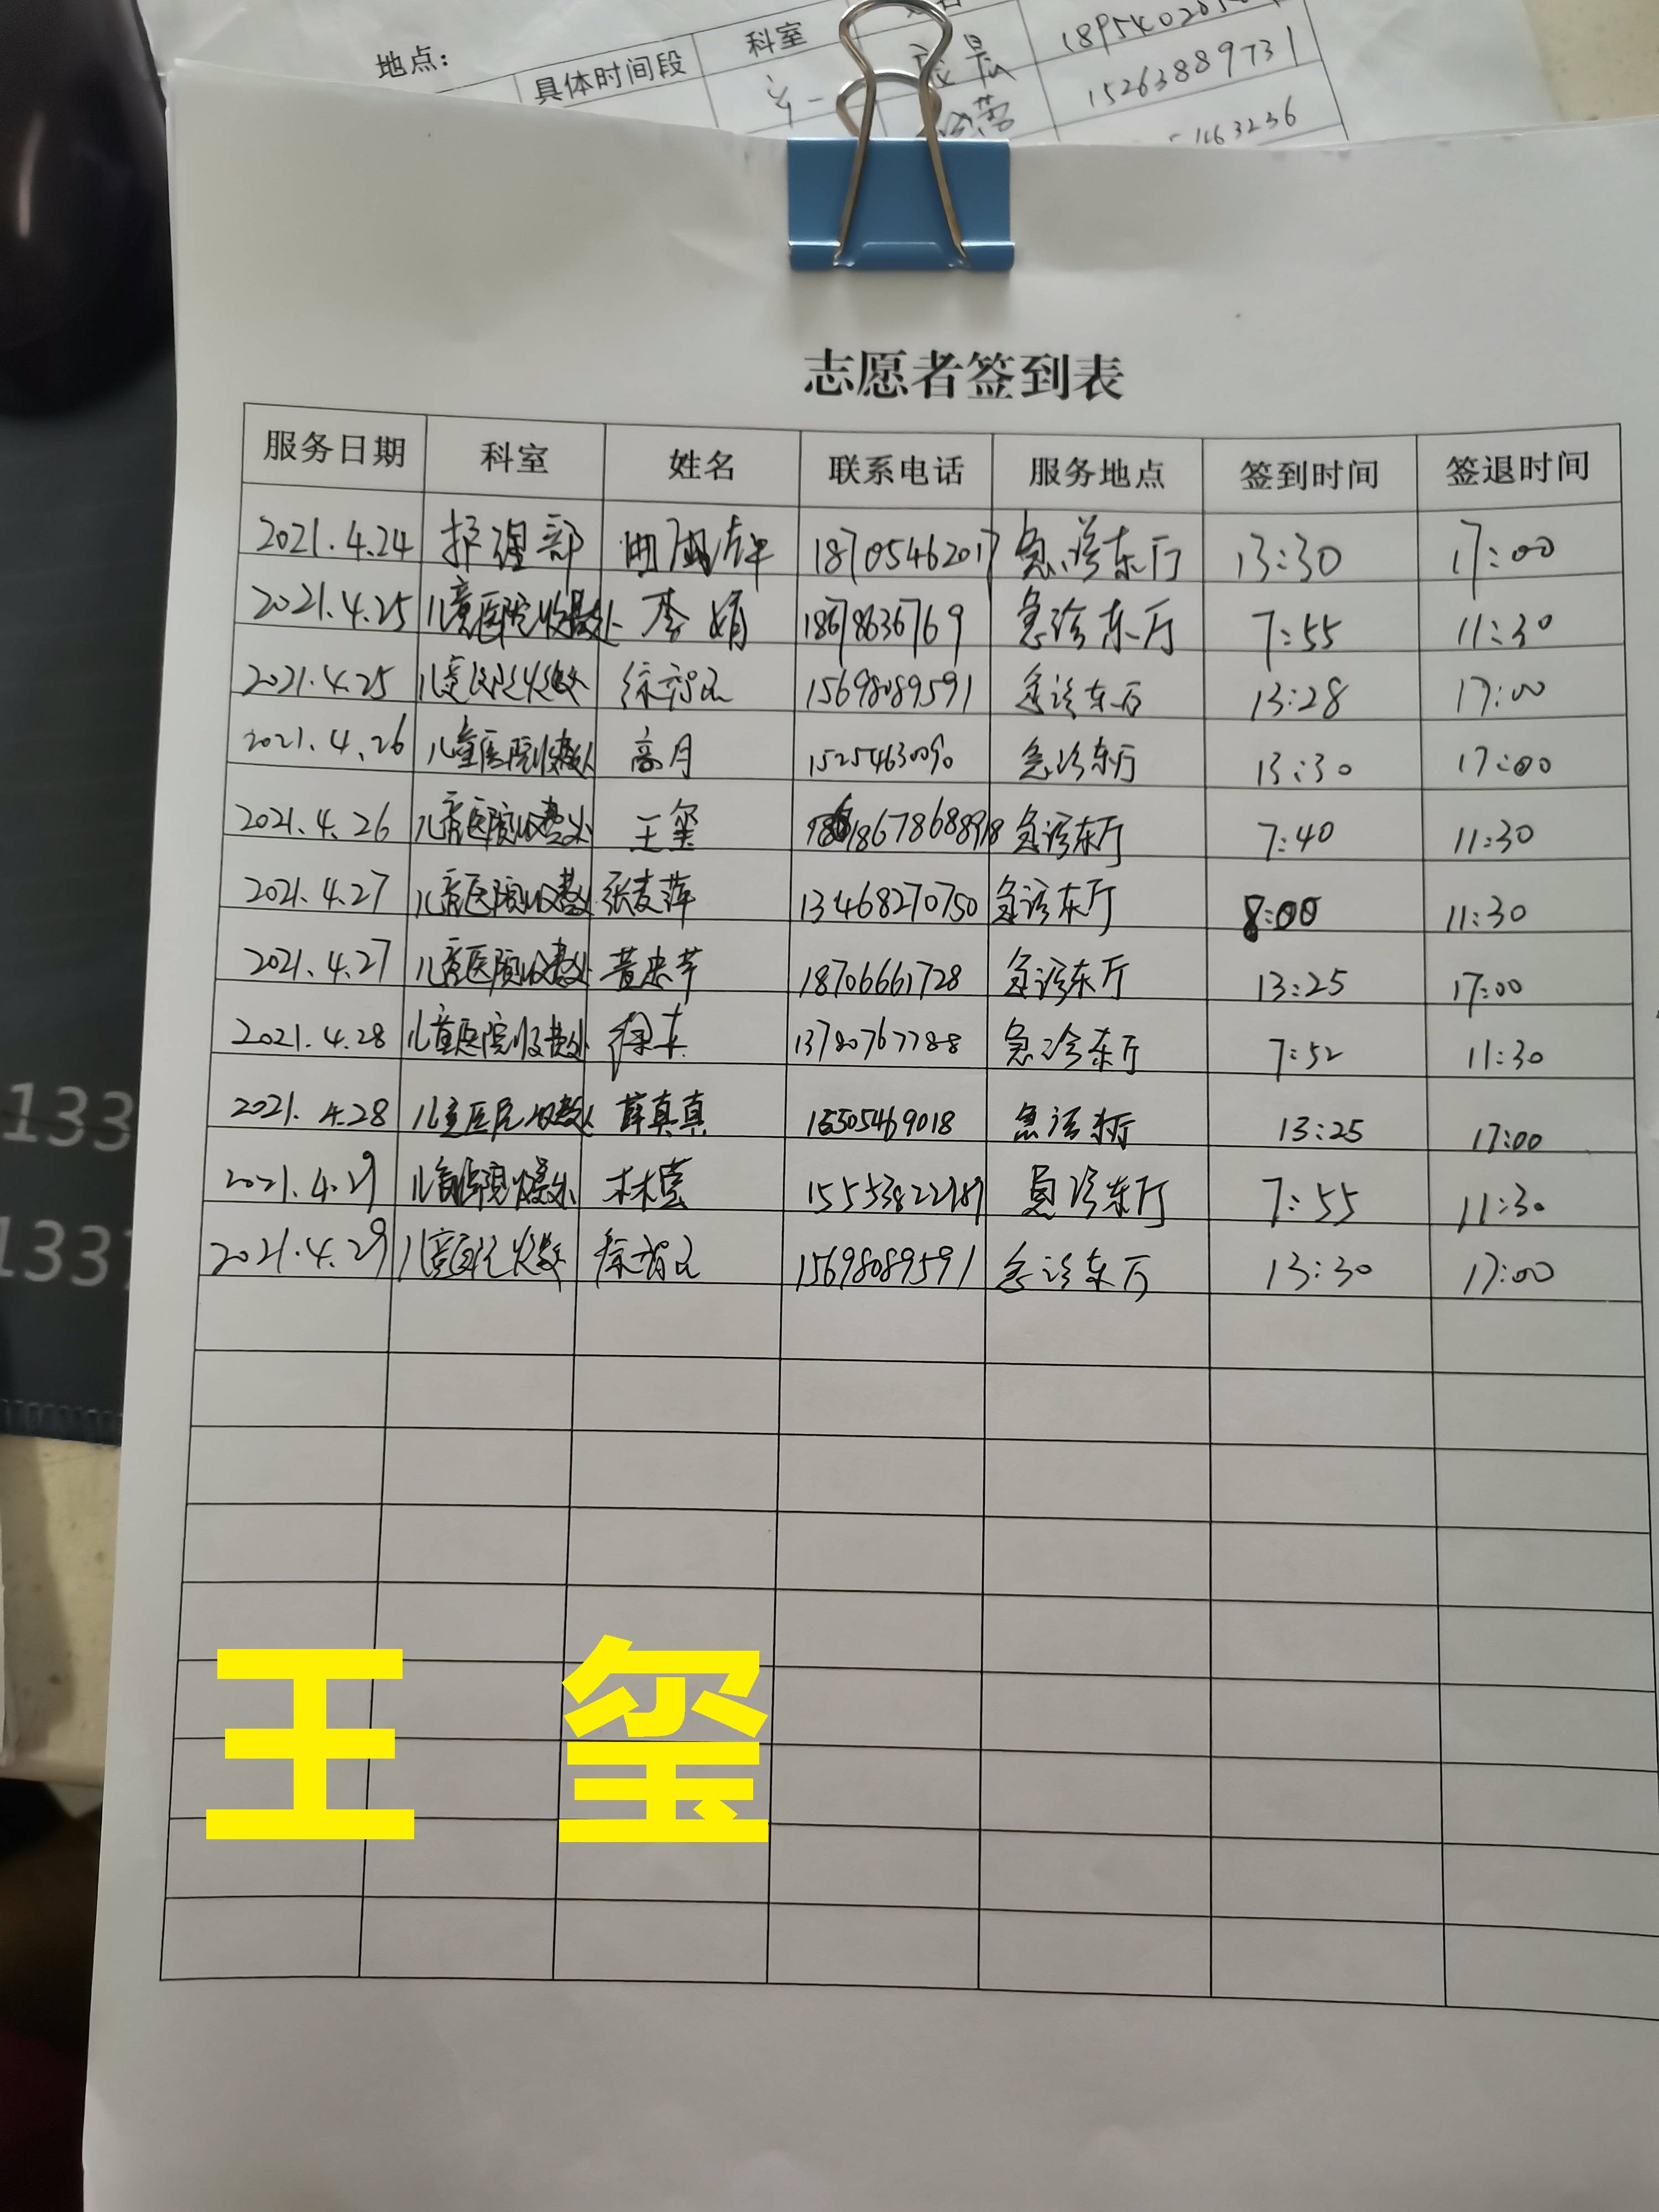 地点：
具体时间段 科室
15263889731
163236
志愿者签到表
服务日期 科室 姓名 联系电话 服务地点 签到时间 签退时间
2021.4.24 护理部 18705462017 急诊东厅 13:30 17:00
2021.4.25 儿童医院收费处 李娟 18678636769 急诊东厅 7:55 11:30
2021.4.25 儿童医院收费处 15698089591 急诊东厅 13:28 17:00
2021.4.26 儿童医院收费处 高月 15254630090 急诊东厅 13:30 17:00
2021.4.26 儿童医院收费处 王玺 急诊东厅 7:40 11:30
2021.4.27 儿童医院收费处 张麦萍 13468270750 急诊东厅 8:00 11:30
2021.4.27 儿童医院收费处 18706661728 急诊东厅 13:25 17:00
2021.4.28 儿童医院收费处 急诊东厅 7:52 11:30
2021.4.28 儿童医院收费处 薛真真 15305469018 急诊东厅 13:25 17:00
2021.4.29 儿童医院收费处 林莹 急诊东厅 7:55 11:30
2021.4.29 儿童医院收费处 15698089591 急诊东厅 13:30 17:00
133
133
王 玺